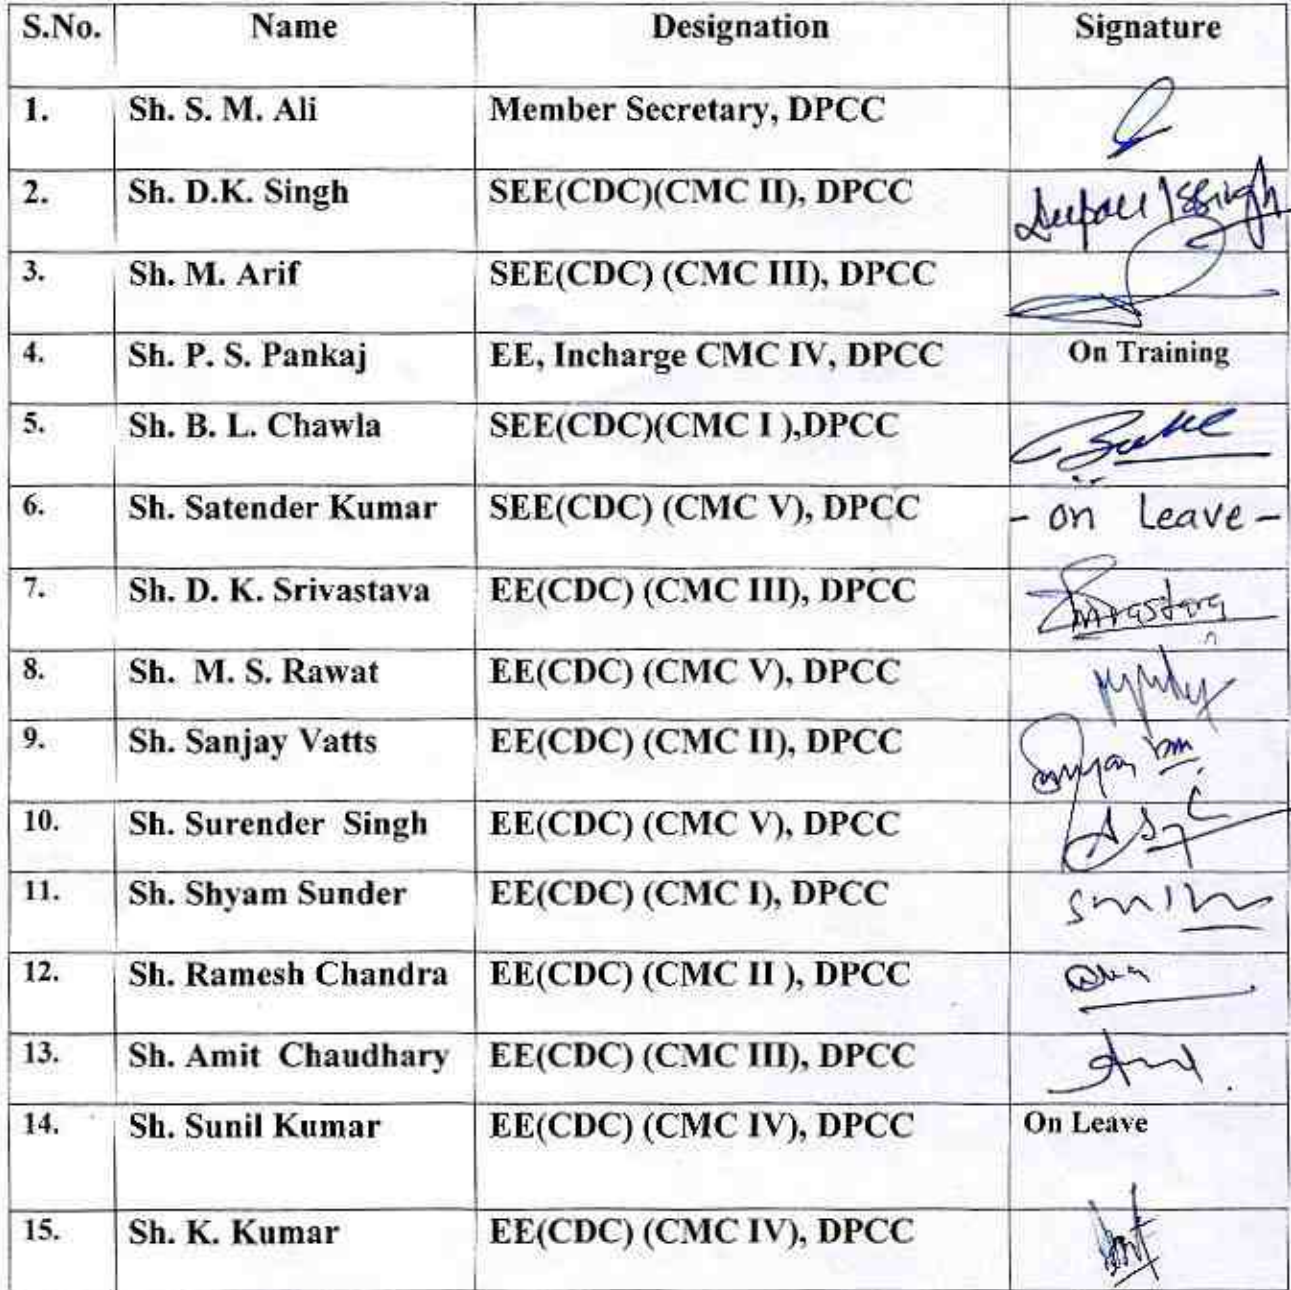 S.No. Name Designation Signature
1. Sh. S. M. Ali Member Secretary, DPCC
2. Sh. D.K. Singh SEE(CDC)(CMC II), DPCC
3. Sh. M. Arif SEE(CDC) (CMC III), DPCC
4. Sh. P. S. Pankaj EE, Incharge CMC IV, DPCC On Training
5. Sh. B. L. Chawla SEE(CDC)(CMC I ),DPCC
6. Sh. Satender Kumar SEE(CDC) (CMC V), DPCC - on Leave -
7. Sh. D. K. Srivastava EE(CDC) (CMC III), DPCC
8. Sh. M. S. Rawat EE(CDC) (CMC V), DPCC
9. Sh. Sanjay Vatts EE(CDC) (CMC II), DPCC
10. Sh. Surender Singh EE(CDC) (CMC V), DPCC
11. Sh. Shyam Sunder EE(CDC) (CMC I), DPCC
12. Sh. Ramesh Chandra EE(CDC) (CMC II ), DPCC
13. Sh. Amit Chaudhary EE(CDC) (CMC III), DPCC
14. Sh. Sunil Kumar EE(CDC) (CMC IV), DPCC On Leave
15. Sh. K. Kumar EE(CDC) (CMC IV), DPCC